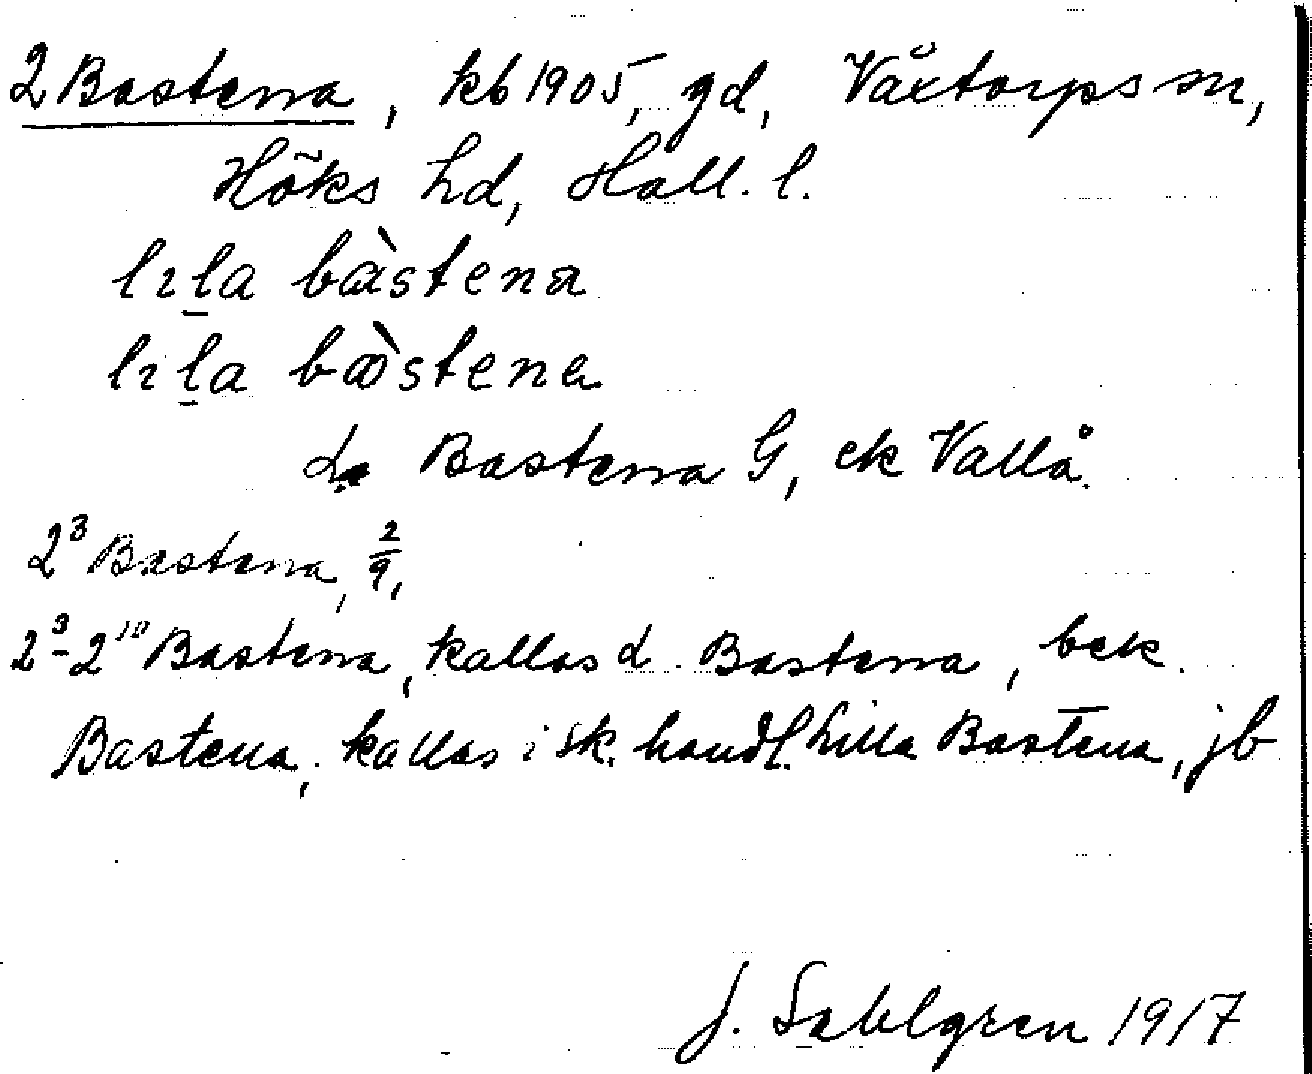 2 Bastena, kb 1905, gd, Växtorps sn,
Höks hd, Hall. l.
lıla bàstena
lıla bàstena
Bastena G, ek Vallå.
2³ Bastena, 2/9,
2³-2¹⁰ Bastena, kallas d. Bastena, bek.
Bastena, kallas i sk. handl. Lilla Bastena, jb
J. Sahlgren 1917